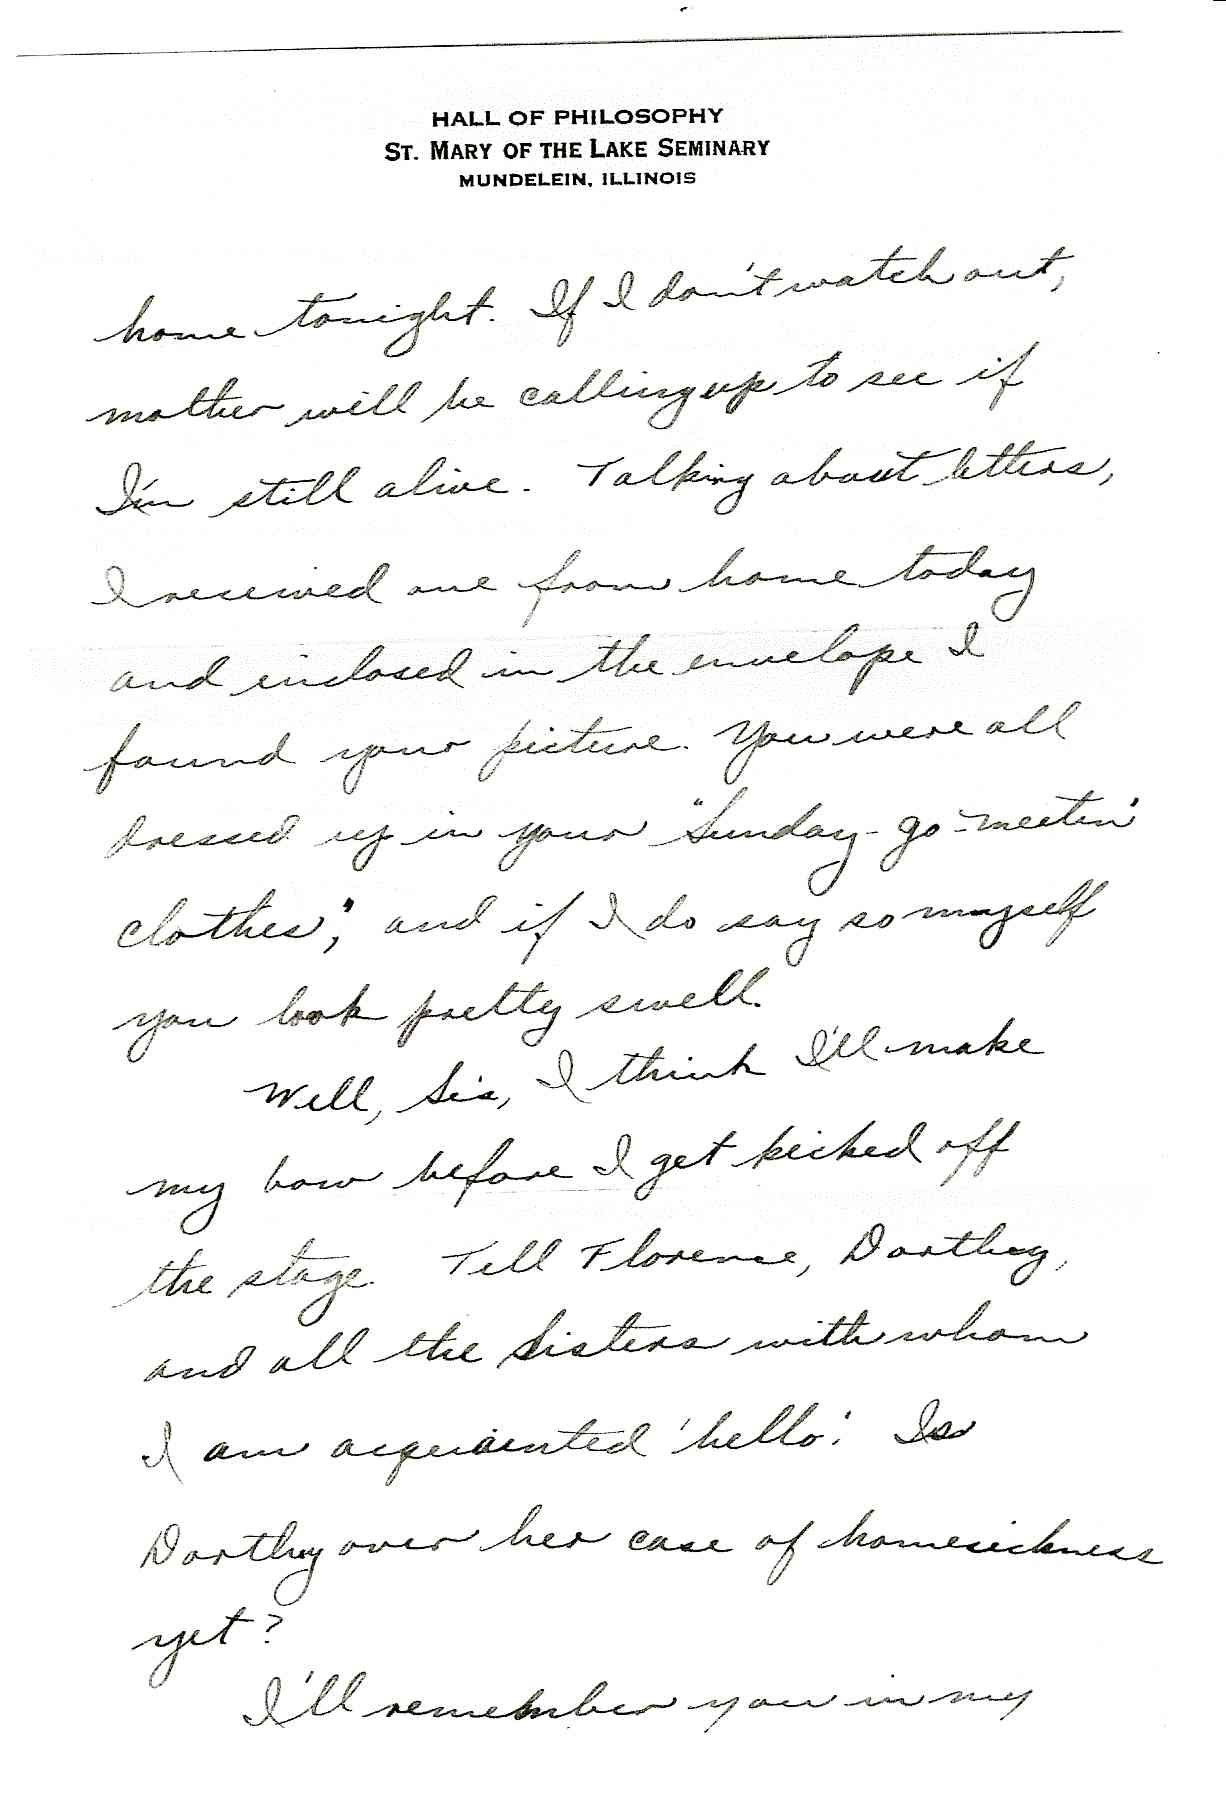 HALL OF PHILOSOPHY
ST. MARY OF THE LAKE SEMINARY
MUNDELEIN, ILLINOIS
home tonight. If I don't watch out,
mother will be calling up to see if
I'm still alive. Talking about letters,
I received one from home today
and inclosed in the envelope I
found your picture. You were all
dressed up in your "Sunday-go-meetin'
clothes", and if I do say so myself
you look pretty swell.
Well, Sis, I think I'll make
my bow before I get kicked off
the stage. Tell Florence, Dorthy,
and all the Sisters with whom
I am acquainted 'hello'. Is
Dorthy over her case of homesickness
yet?
I'll remember you in my